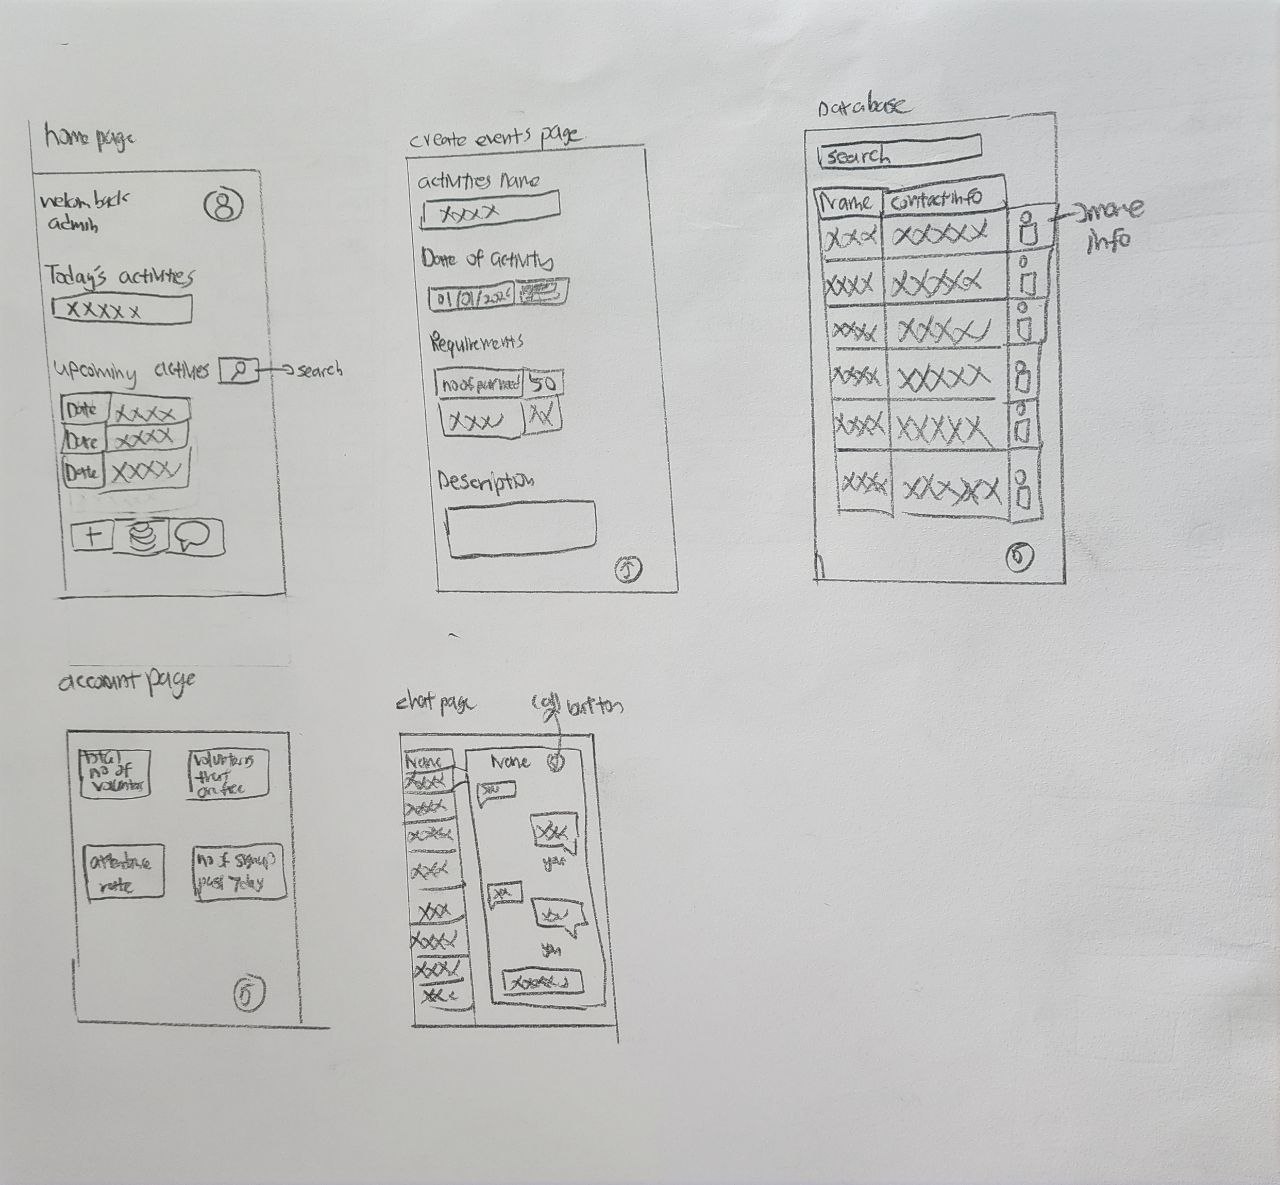 home page
welcom back
admin
Today's activities
xxxxx
upcoming activities
search
Date xxxx
Date xxxx
Date xxxx
+
create events page
activities name
xxxx
Date of activity
01/01/2025
Requirements
50
xxx xx
Description
Database
search
Name contact info
more
info
xxx xxxxx
xxxx xxxxx
xxxx xxxxx
xxxx xxxxx
xxxx xxxxx
xxxx xxxxx
account page
total
no of
volunteers
volunteers
that
are free
rate
no of signup
past 7day
chat page
call button
Name
xxxx
xxxx
xxxx
xxx
xxx
xxxx
xxxx
xxx
Name
xx
xxx
you
xx
xx
you
xxxxx